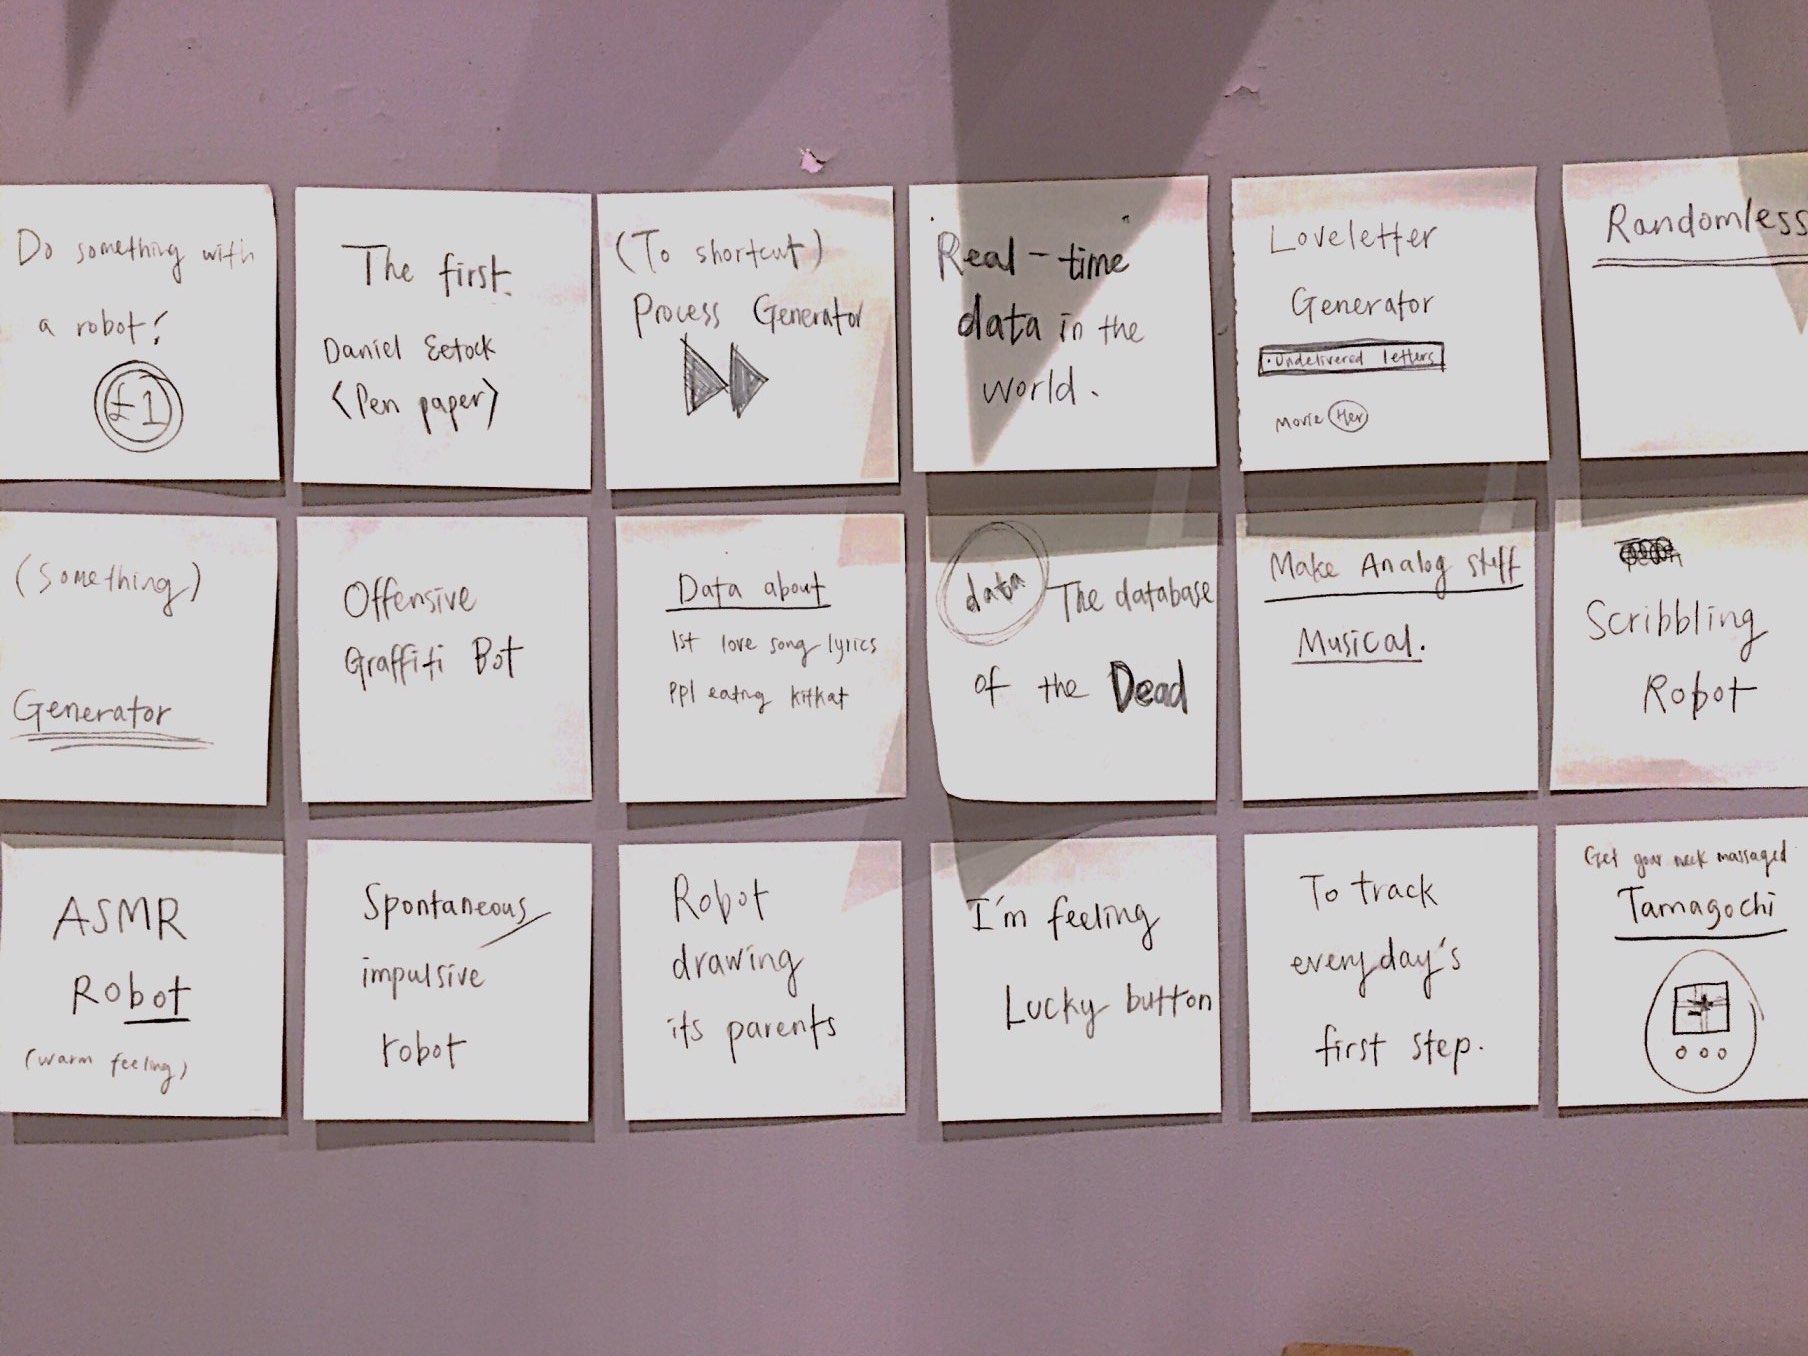 Do something with
a robot!
£1
The first.
Daniel Eetock
<Pen paper>
(To shortcut)
Process Generator
"Real-time"
data in the
world.
Loveletter
Generator
• Undelivered letters
Movie Her
Randomless
(Something)
Generator
Offensive
Graffiti Bot
Data about
1st love song lyrics
ppl eating kitkat
data The database
of the Dead
Make Analog stuff
Musical.
Scribbling
Robot
ASMR
Robot
(warm feeling)
Spontaneous
impulsive
robot
Robot
drawing
its parents
I'm feeling
Lucky button
To track
everyday's
first step.
Get your neck massaged
Tamagochi